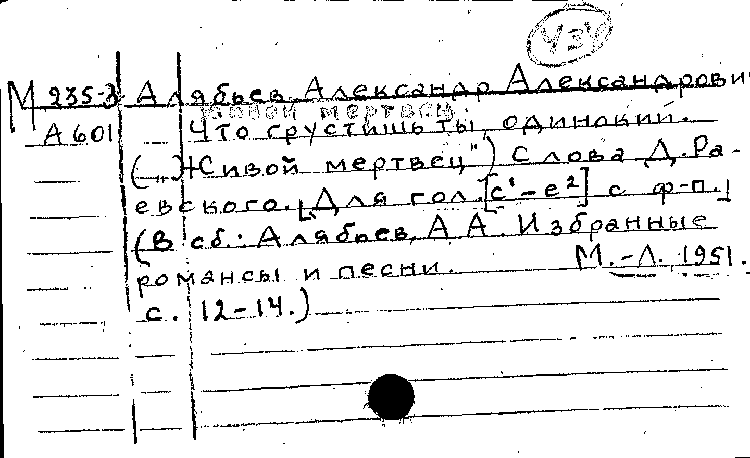 434
М 235-3 Алябьев, Александр Александрович
Живой мертвец.
А 601 Что грустишь ты, одинокий.
(„Живой мертвец") Слова Д. Ра-
евского. [Для гол. [c¹-e²] с ф-п.]
(В сб.: Алябьев, А. А. Избранные
романсы и песни. М.-Л., 1951.
с. 12-14.)